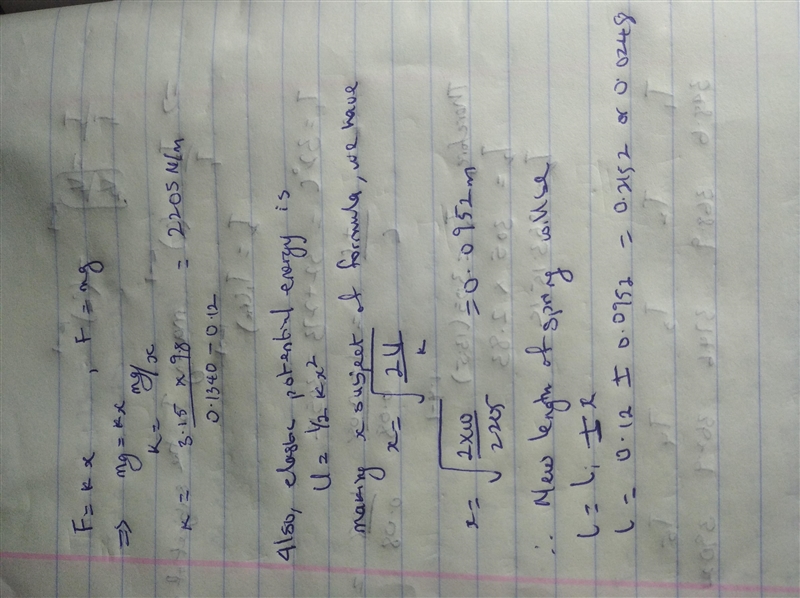 F = kx , F = mg
⇒ mg = kx
k = mg/x
k = 3.15 x 9.8 / 0.1340 - 0.12 = 2205 N/m
Also, elastic potential energy is
U = 1/2 kx²
making x subject of formula, we have
x = √(2U/k)
x = √(2x10/2205) = 0.0952m
∴ New length of spring will be
L = L₁ ± x
L = 0.12 ± 0.0952 = 0.2152 or 0.0248